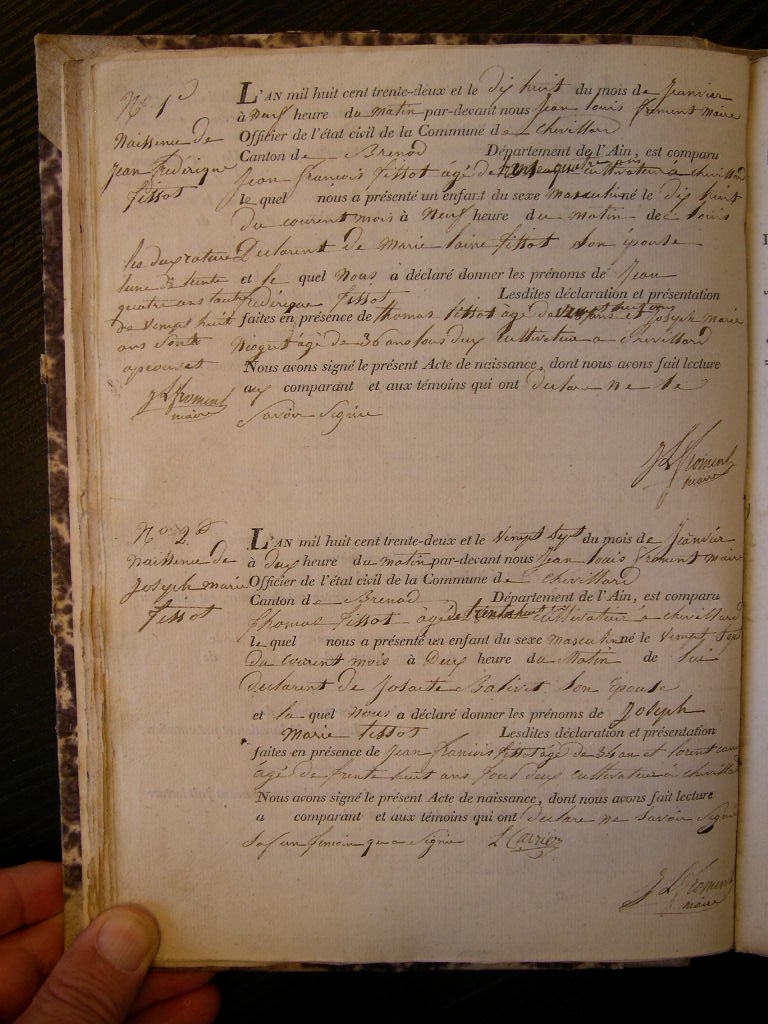 No. 1er
Naissence de
Jean frédérique
Tissot
L'AN mil huit cent trente-deux et le dix huit du mois de Janvier
à neuf heure du matin par-devant nous Jean Louis froment maire
Officier de l'état civil de la Commune de Chevillard
Canton de Brenod Département de l'Ain, est comparu
Jean francois Tissot âgé de cultivateur a chevillard
le quel nous a présenté un enfant du sexe masculin né le dix huit
du courent mois à neuf heure du matin de
Declarent de Marie laine Tissot son épouse
et le quel nous a déclaré donner les prénoms de Jean
frédérique Tissot Lesdites déclaration et présentation
faites en présence de thomas Tissot âgé de et Joseph marie
âgé de 36 ans tous deux cultivateur a chevillard
Nous avons signé le présent Acte de naissance, dont nous avons fait lecture
aux comparant et aux témoins qui ont declare ne le
savoir signée
les deux rature
lune de trente
quatre ans lautre
de vingt huit
ans sont
aprouvet
J L froment
maire
J L froment
maire
No. 2e
naissence de
Joseph marie
Tissot
L'AN mil huit cent trente-deux et le vingt sept du mois de Janvier
à deux heure du matin par-devant nous Jean louis froment maire
Officier de l'état civil de la Commune de Chevillard
Canton de Brenod Département de l'Ain, est comparu
thomas Tissot âgé de trente huit cultivateur a chevillard
le quel nous a présenté un enfant du sexe masculin né le vingt sept
du courent mois à deux heure du matin de lui
declarent de Josaete Balivet son epouse
et le quel nous a déclaré donner les prénoms de Joseph
marie Tissot Lesdites déclaration et présentation
faites en présence de Jean francois Tissot âgé de 34 an et lorent
âgé de trente huit ans tous deux cultivateur a chevillard
Nous avons signé le présent Acte de naissance, dont nous avons fait lecture
a comparant et aux témoins qui ont declare ne savoir signé
sof un temoin qua signée L Carrier
J L froment
maire